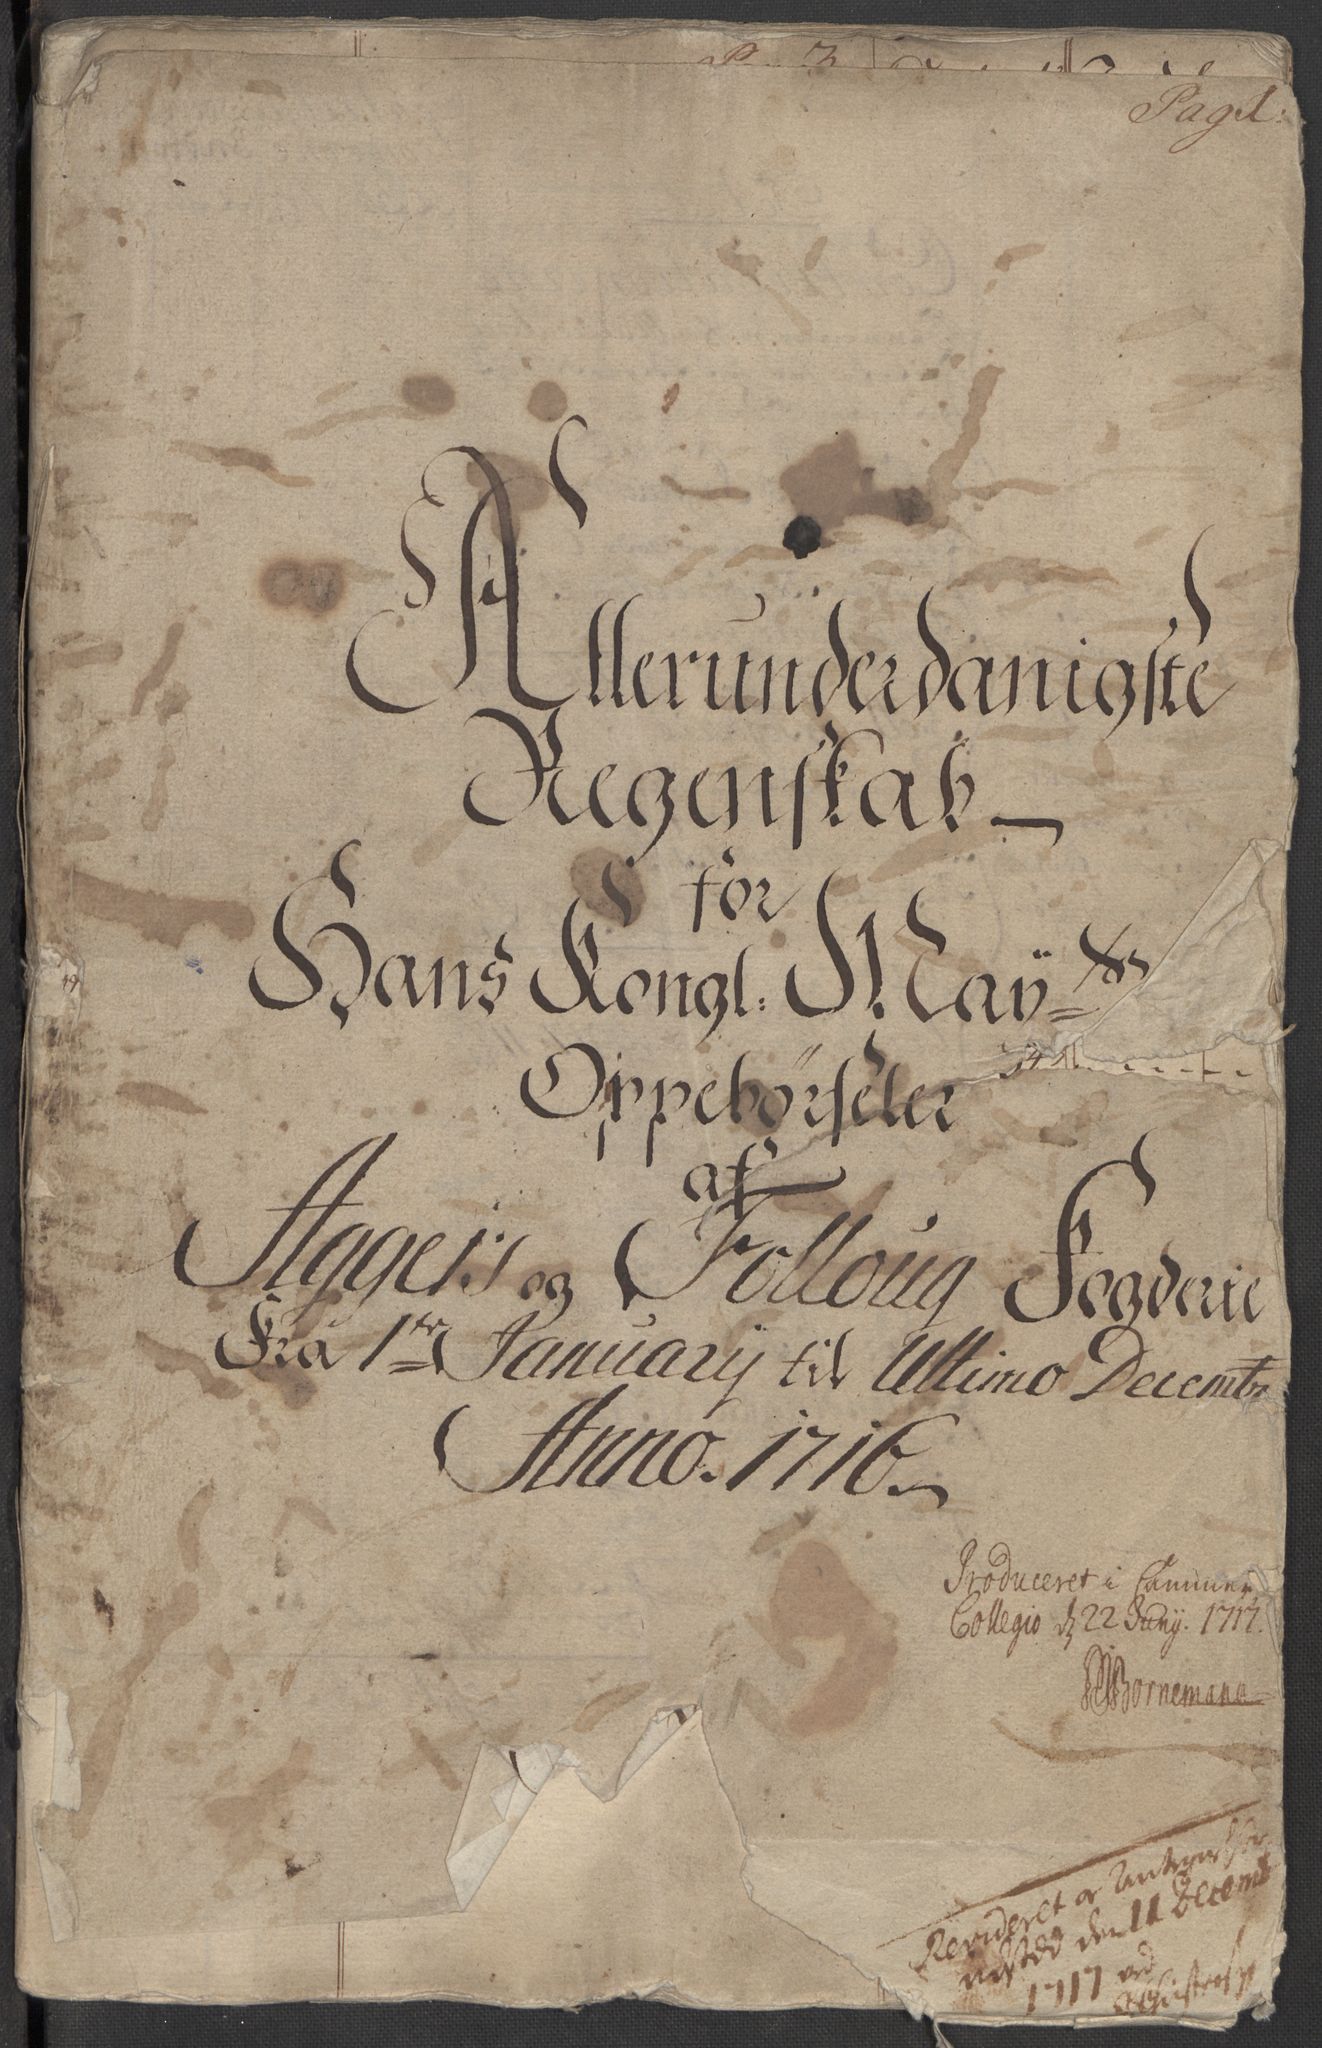 Pag 1:
Allerunderdanigste
Regenskab
for
Hans Kongl: May=
Oppebörseler
af
Aggers og Folloug Fogderie
Fra 1te January til Ultimo Decembr
Anno. 1716
Produceret i Cammer
Collegio d 22 Junij. 1717.
Bornemann
Revideret og
den 11 Decemb
1717 ved